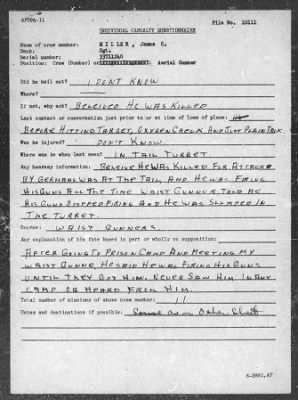 AFPPA-11
File No. 10111
INDIVIDUAL CASUALTY QUESTIONNAIRE
Name of crew member: MILLER, James C.
Rank: Sgt.
Serial number:
Position: Crew (Bomber) or Aerial Gunner
Did he bail out? I DONT KNOW
Where?
If not, why not? BELEIVED HE WAS KILLED
Last contact or conversation just prior to or at time of loss of plane:
BEFORE HITTING TARGET, OXYGEN CHECK AND JUST PLAIN TALK
Was he injured? DON'T KNOW
Where was he when last seen? IN TAIL TURRET
Any hearsay information: BELEIVE HE WAS KILLED FOR ATTACK
BY GERMANS WAS AT THE TAIL, AND HE WAS FIRING
HIS GUNS ALL THE TIME WAIST GUNNER TOLD ME
HIS GUNS STOPPED FIRING AND HE WAS SLUMPED IN
THE TURRET
Source: WAIST GUNNERS.
Any explanation of his fate based in part or wholly on supposition:
AFTER GOING TO PRISON CAMP AND MEETING MY
WAIST GUNNER, HE SAID HE WAS FIRING HIS GUNS
UNTIL THEY GOT HIM. NEVER SAW HIM IN ANY
CAMP OR HEARD FROM HIM.
Total number of missions of above crew member: 11
Dates and destinations if possible: Same as on Other Sheet
6-3861,AF